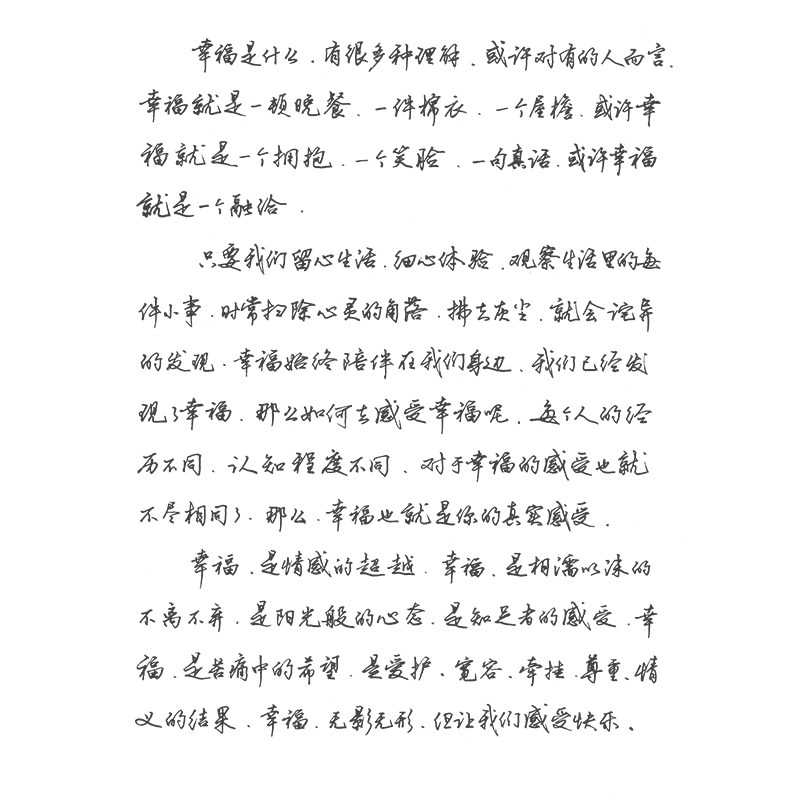 幸福是什么，有很多种理解，或许对有的人而言，
幸福就是一顿晚餐、一件棉衣、一个屋檐，或许幸
福就是一个拥抱、一个笑脸、一句真语，或许幸福
就是一个融洽。
只要我们留心生活，细心体验，观察生活里的每
件小事，时常扫除心灵的角落，拂去灰尘，就会诧异
的发现，幸福始终陪伴在我们身边，我们已经发
现了幸福，那么如何去感受幸福呢，每个人的经
历不同，认知程度不同，对于幸福的感受也就
不尽相同了，那么，幸福也就是你的真实感受。
幸福，是情感的超越，幸福，是相濡以沫的
不离不弃，是阳光般的心态，是知足者的感受，幸
福，是苦痛中的希望，是爱护、宽容、牵挂、尊重、情
义的结果，幸福，无影无形，但让我们感受快乐。